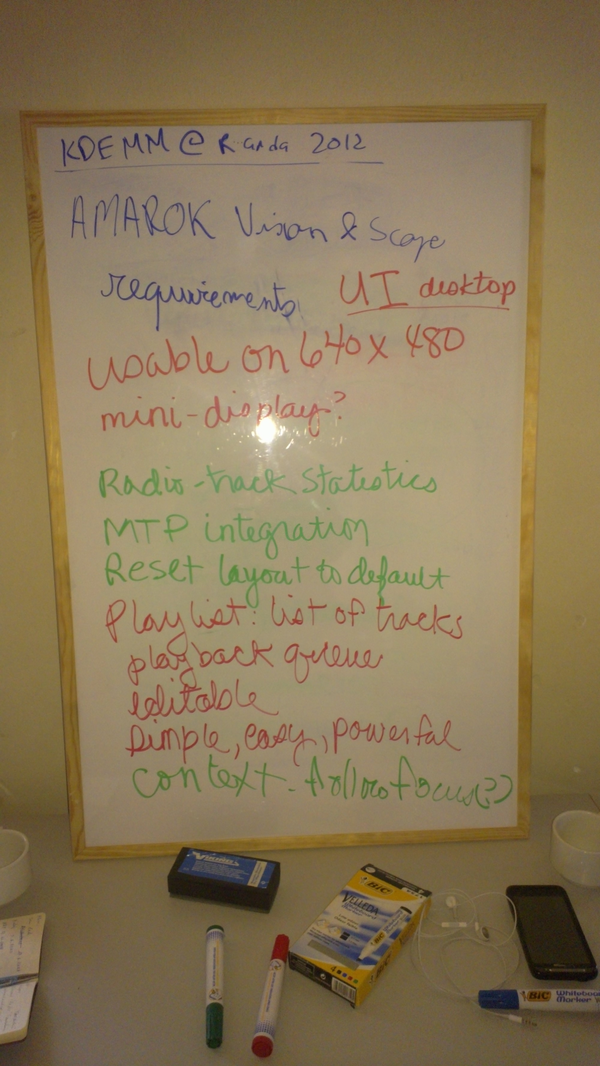 KDEMM @ Randa 2012
AMAROK Vision & Scope
requirements UI desktop
Usable on 640 x 480
mini-display?
Radio-track statistics
MTP integration
Reset layout to default
Playlist: list of tracks
playback queue
editable
simple, easy, powerful
context - follow focus(?)
BIC
VELLEDA
BIC
Whiteboard
Marker